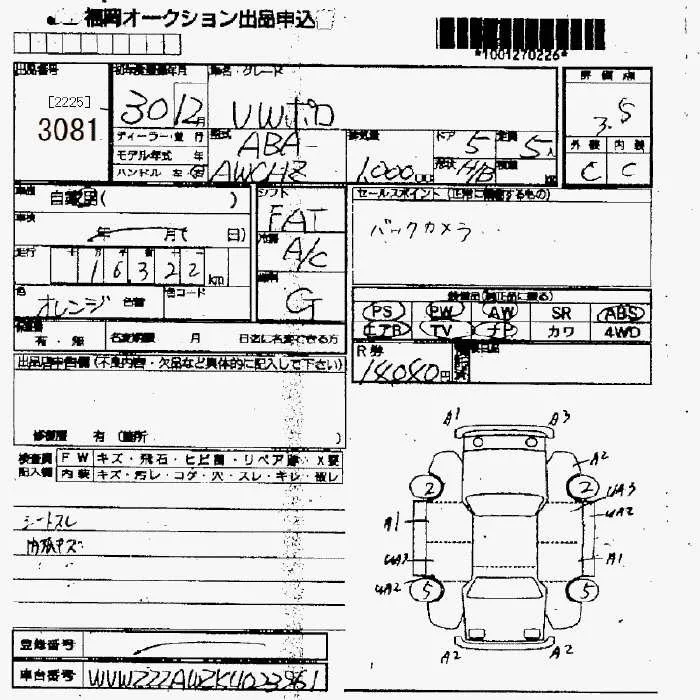 福岡オークション出品申込
*1001270226*
出品番号
[2225]
3081
初年度登録年月
30 12月
車名・グレード
VWポロ
評価点
3.5
外装 内装
C C
ディーラー・並行
モデル年式 年
ハンドル 左・右
型式
ABA
AWCHZ
排気量
1,000
ドア 5
形状 H/B
定員 5人
積載
車歴
自家用( )
車検
年 月( 日)
走行
16322 km
色
オレンジ 色替
色コード
シフト
FAT
冷房
A/C
燃料
G
セールスポイント(正常に機能するもの)
バックカメラ
装備品(純正品に限る)
PS PW AW SR ABS
エアB TV ナビ カワ 4WD
R券
14040円
有・無 名変期限 月 日迄に名変できる方
出品店申告欄(不良内容・欠品など具体的に記入して下さい)
修復歴 有(箇所 )
検査員
記入欄
FW キズ・飛石・ヒビ菌・リペア跡・X要
内装 キズ・汚レ・コゲ・穴・スレ・キレ・破レ
シートスレ
内張キズ
A1 A3
A2
2 2
UA3
UA2
A1
UA3 A1
UA2
5 5
A2 A2
登録番号
車台番号
WVWZZZAWZKU023961